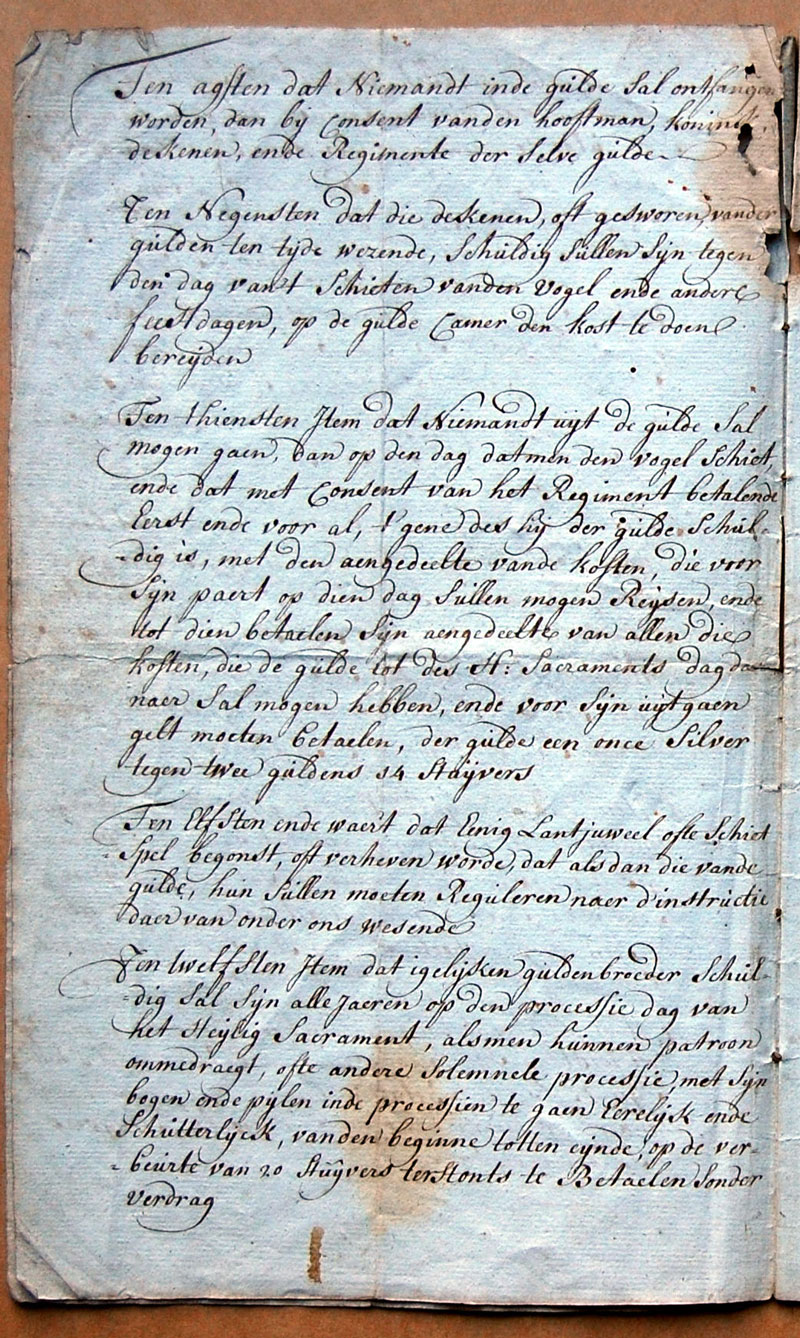 Ten agsten dat Niemandt inde gülde Sal ontfangen
worden, dan bij Consent vanden hooftman, konink,
dekenen, ende Regimente der Selve gülde
Ten Negensten dat die dekenen, oft gesworen, vander
gülden ten tijde wezende, Schüldig Süllen Sijn tegen
den dag van't Schieten vanden Vogel ende andere
feest dagen, op de gülde Camer den kost te doen
bereijden
Ten thiensten Item dat Niemandt üijt de gülde Sal
mogen gaen, dan op den dag datmen den vogel Schiet,
ende dat met Consent van het Regiment betalende
Eerst ende voor al, t'gene des hij der gülde Schül-
-dig is, met den aengedeelte vande kosten, die voor
Sijn paert op dien dag Süllen mogen Reijsen, ende
tot dien betaelen Sijn aengedeelte van allen die
kosten, die de gülde tot des H: Sacraments dag da
naer Sal mogen hebben, ende voor Sijn üijtgaen
gelt moeten betaelen, der gülde een once Silver
tegen twee güldens 14 Stüijvers
Ten Elfsten ende waer't dat Eenig Lantjuweel ofte Schiet
-Spel begonst, oft verheven worde, dat als dan die vande
gülde, hün Süllen moeten Reguleren naer d'instructie
daer van onder ons wesende
Ten twelfsten Item dat igelijken güldenbroeder Schül-
-dig Sal Sijn alle Jaeren op den processie dag van
het Heijlig Sacrament, alsmen hünnen patroon
ommedraegt, ofte andere Solemnele processie, met Sijn
bogen ende pijlen inde processien te gaen Eerelijsk ende
Schütterlijck, vanden beginne totten eijnde, op de ver-
-beürte van 20 Stüijvers terstonts te Betaelen Sonder
verdrag